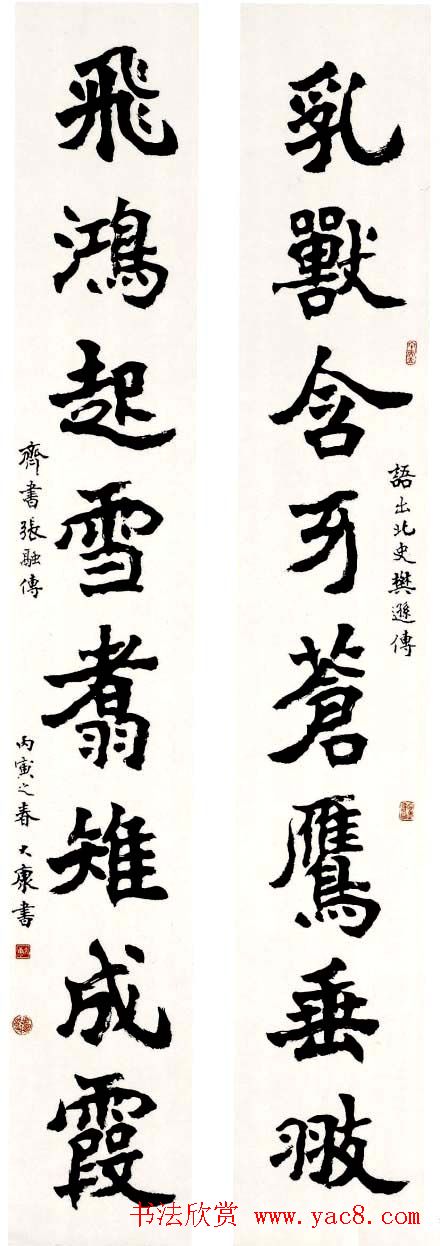 乳獸含牙蒼鷹垂翄
語出北史樊遜傳
飛鴻起雪翥雉成霞
齊書張融傳
丙寅之春大康書
书法欣赏 www.yac8.com